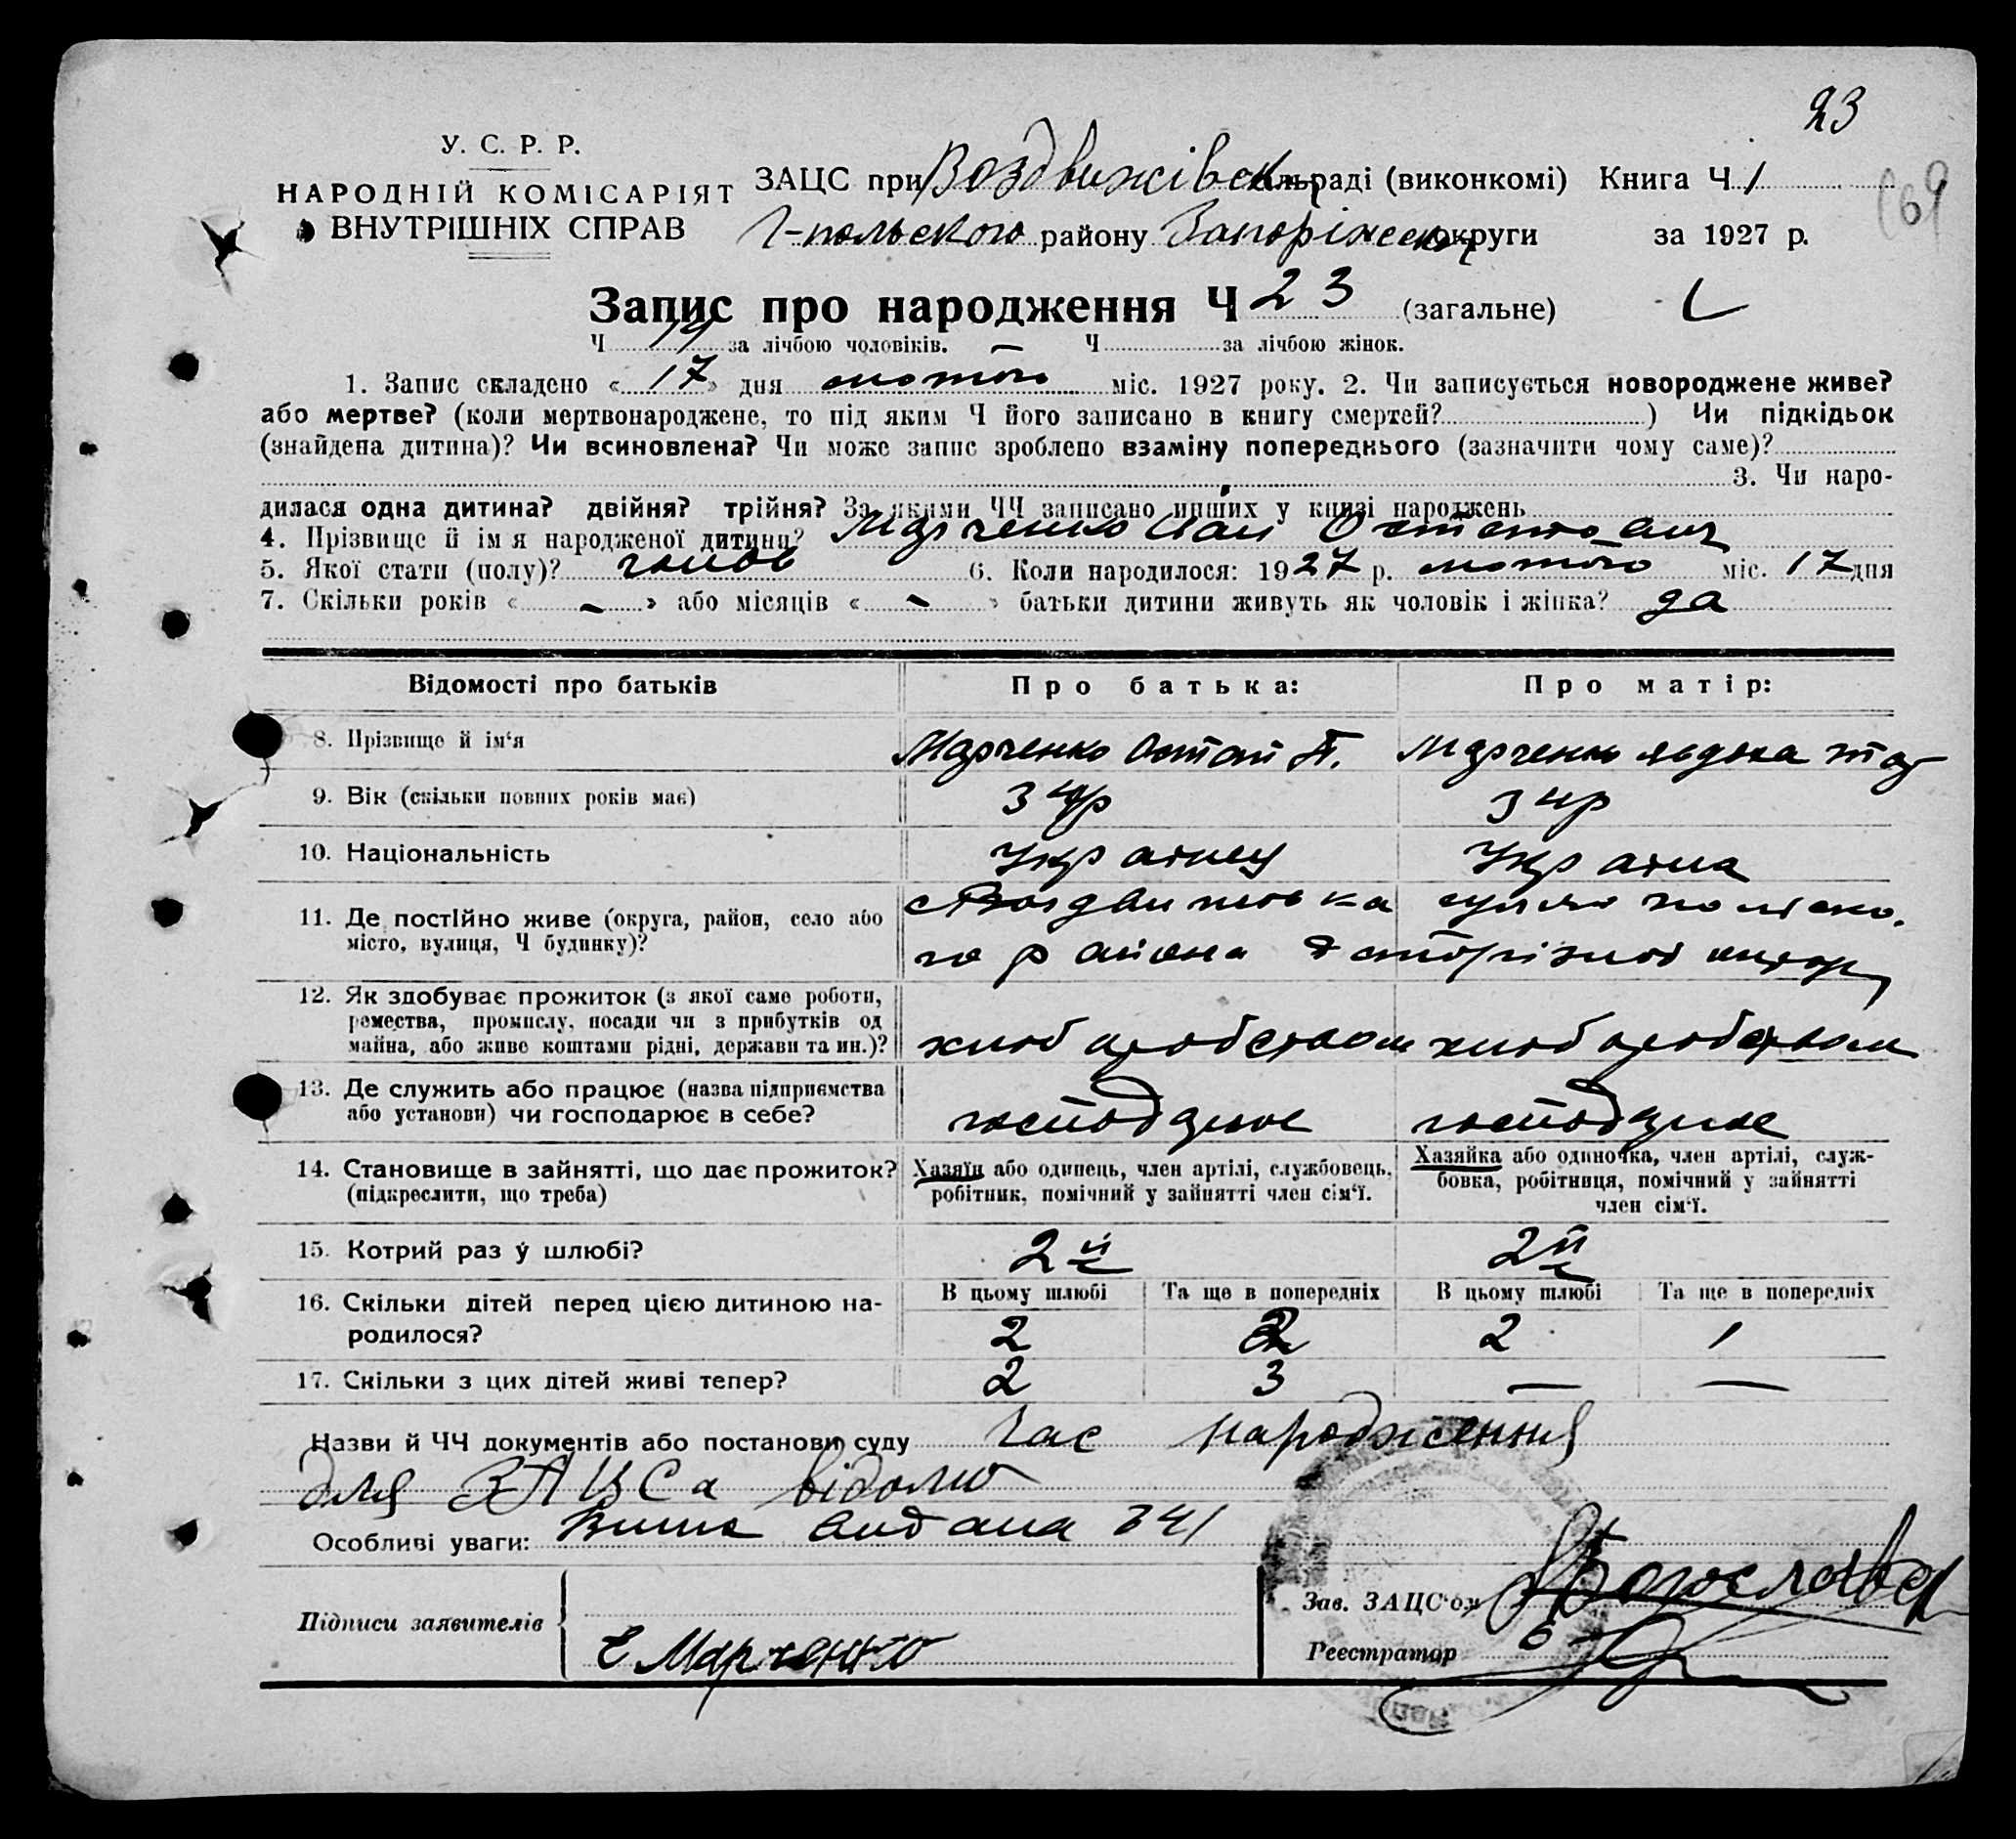 23
У. С. Р. Р.
НАРОДНІЙ КОМІСАРІЯТ
ВНУТРІШНІХ СПРАВ
ЗАЦС при Воздвижівск. сільраді (виконкомі) Книга Ч 1
Г-польского району Запоріжськ округи за 1927 р.
Запис про народження Ч 23 (загальне)
Ч 14 за лічбою чоловіків. Ч — за лічбою жінок.
1. Запис складено « 17 » дня лютого міс. 1927 року. 2. Чи записується новороджене живе?
або мертве? (коли мертвонароджене, то під яким Ч його записано в книгу смертей? ) Чи підкідьок
(знайдена дитина)? Чи всиновлена? Чи може запис зроблено взаміну попереднього (зазначити чому саме)?
3. Чи наро-
дилася одна дитина? двійня? трійня? За якими ЧЧ записано инших у книзі народжень
4. Прізвище й ім я народженої дитини? Марченко
5. Якої стати (полу)? чолов 6. Коли народилося: 1927 р. лютого міс. 17 дня
7. Скільки років « – » або місяців « – » батьки дитини живуть як чоловік і жінка? да
Відомості про батьків Про батька: Про матір:
8. Прізвище й ім‘я Марченко Остап П. Марченко явдоха
9. Вік (скільки повних років має) 34р 34р
10. Національність Украинец Украина
11. Де постійно живе (округа, район, село або
місто, вулиця, Ч будинку)?
района
12. Як здобуває прожиток (з якої саме роботи,
ремества, промислу, посади чи з прибутків од
майна, або живе коштами рідні, держави та ин.)? хлиборобством хлиборобством
13. Де служить або працює (назва підприємства
або установи) чи господарює в себе?
14. Становище в зайнятті, що дає прожиток?
(підкреслити, що треба)
Хазяїн або одинець, член артілі, службовець,
робітник, помічний у зайнятті член сім‘ї.
Хазяйка або одиночка, член артілі, служ-
бовка, робітниця, помічний у зайнятті
член сім‘ї.
15. Котрий раз у шлюбі? 2й 2й
16. Скільки дітей перед цією дитиною на-
родилося?
В цьому шлюбі Та ще в попередніх В цьому шлюбі Та ще в попередніх
2 2 1
17. Скільки з цих дітей живі тепер? 2 3 — —
Назви й ЧЧ документів або постанови суду Час народження
для ЗАЦСа відомо
Особливі уваги: 241
Підписи заявителів Марченко
Зав. ЗАЦС‘ом
Реєстратор